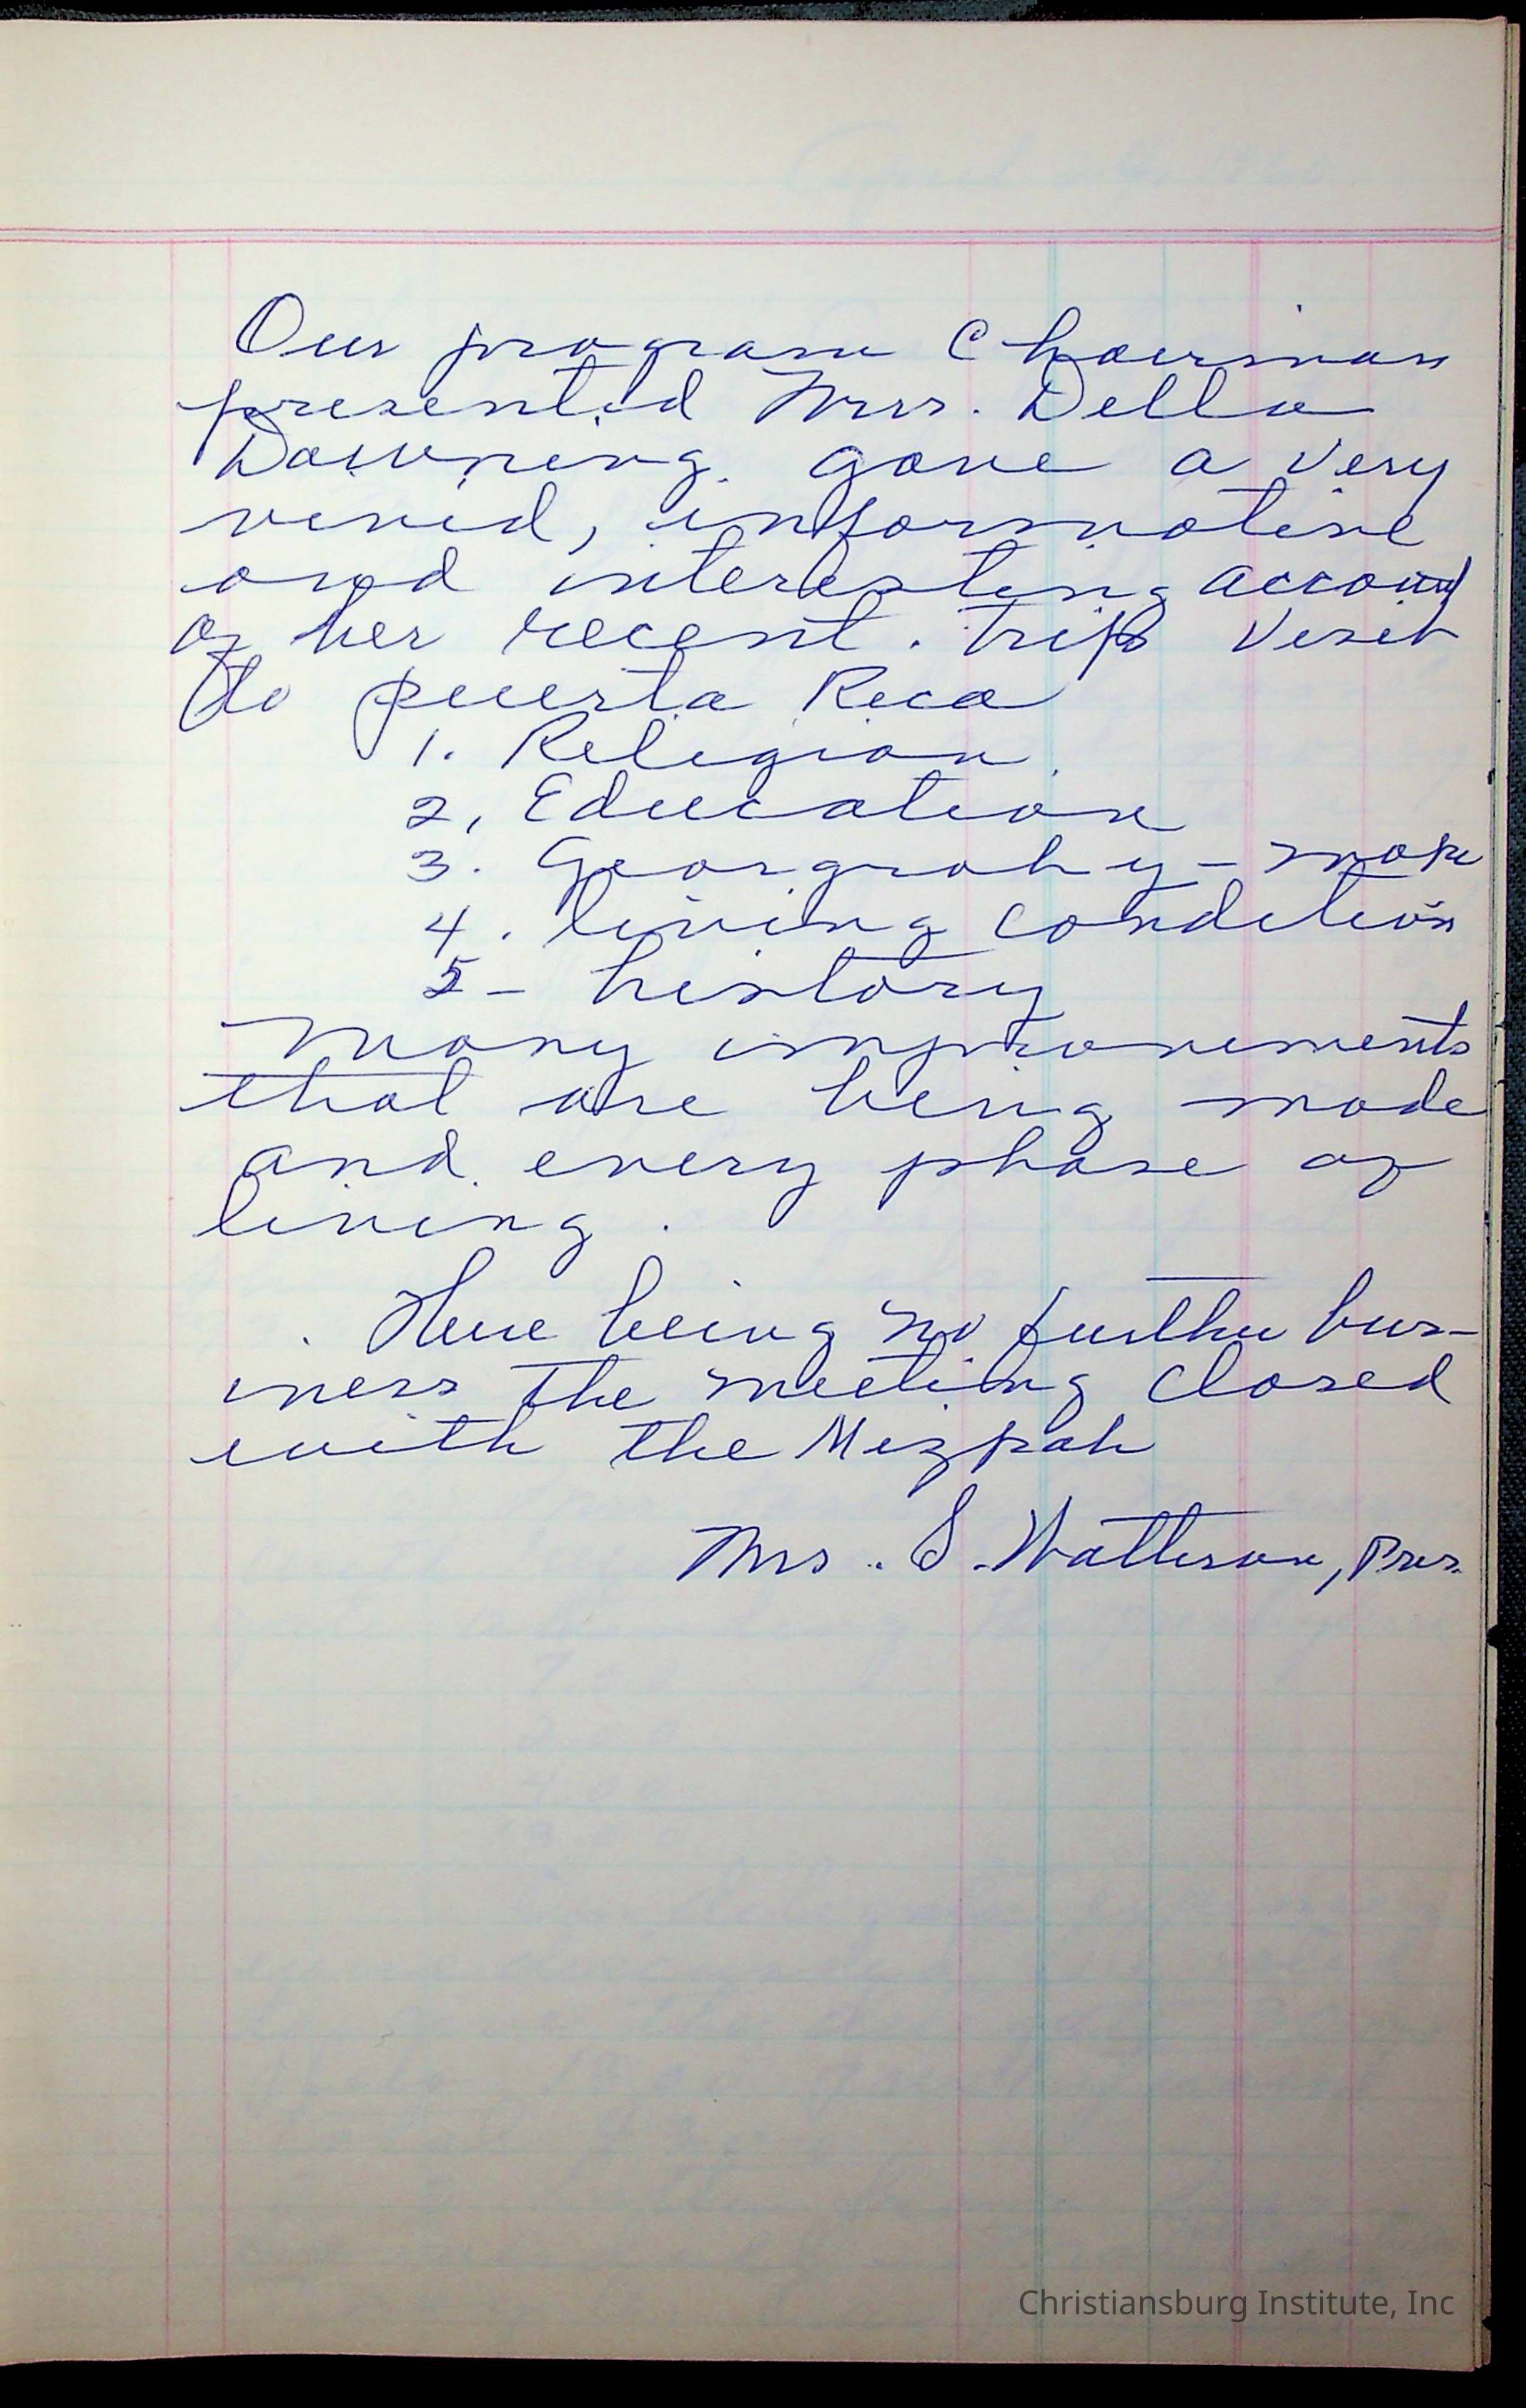 Our program Chairman
presented Mrs. Della
Downing. gave a very
vivid, informative
and interesting account
of her recent. trip visit
to Puerta Rica
1. Religion.
2, Education
3. Georgrahy - map
4. living condition
5 - history
Many improvements
that are being made
and every phase of
living.
There being no further bus-
iness the meeting closed
with the Mizpah
Mrs. S. Watterson, Pres.
Christiansburg Institute, Inc